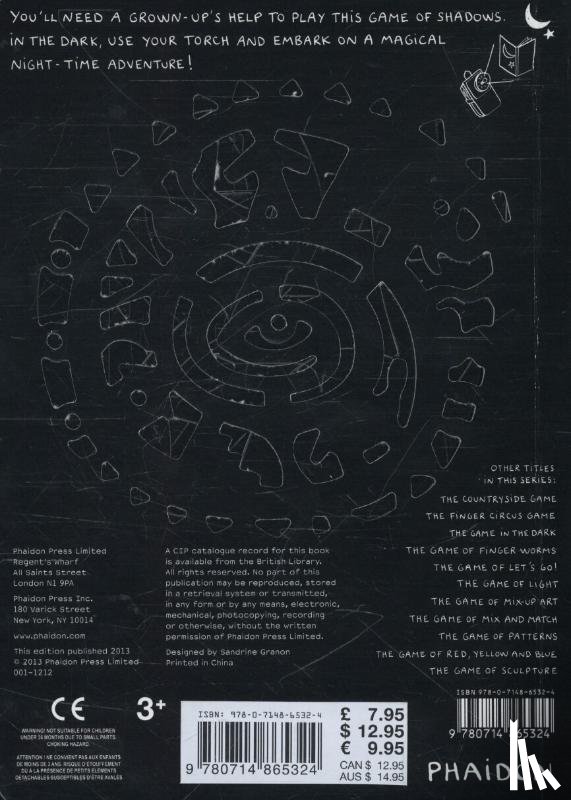 YOU'LL NEED A GROWN-UP'S HELP TO PLAY THIS GAME OF SHADOWS.
IN THE DARK, USE YOUR TORCH AND EMBARK ON A MAGICAL
NIGHT-TIME ADVENTURE!
OTHER TITLES
IN THIS SERIES:
THE COUNTRYSIDE GAME
THE FINGER CIRCUS GAME
THE GAME IN THE DARK
THE GAME OF FINGER WORMS
THE GAME OF LET'S GO!
THE GAME OF LIGHT
THE GAME OF MIX-UP ART
THE GAME OF MIX AND MATCH
THE GAME OF PATTERNS
THE GAME OF RED, YELLOW AND BLUE
THE GAME OF SCULPTURE
Phaidon Press Limited
Regent's Wharf
All Saints Street
London N1 9PA
Phaidon Press Inc.
180 Varick Street
New York, NY 10014
www.phaidon.com
This edition published 2013
© 2013 Phaidon Press Limited
001-1212
A CIP catalogue record for this book
is available from the British Library.
All rights reserved. No part of this
publication may be reproduced, stored
in a retrieval system or transmitted,
in any form or by any means, electronic,
mechanical, photocopying, recording
or otherwise, without the written
permission of Phaidon Press Limited.
Designed by Sandrine Granon
Printed in China
CE 3+
WARNING! NOT SUITABLE FOR CHILDREN
UNDER 36 MONTHS DUE TO SMALL PARTS.
CHOKING HAZARD.
ATTENTION ! NE CONVIENT PAS AUX ENFANTS
DE MOINS DE 3 ANS. RISQUE D'ÉTOUFFEMENT
DU A LA PRÉSENCE DE PETITS ÉLÉMENTS
DÉTACHABLES SUSCEPTIBLES D'ÊTRE AVALÉS.
ISBN: 978-0-7148-6532-4
9 780714 865324
£ 7.95
$ 12.95
€ 9.95
CAN $ 12.95
AUS $ 14.95
ISBN 978-0-7148-6532-4
9 780714 865324